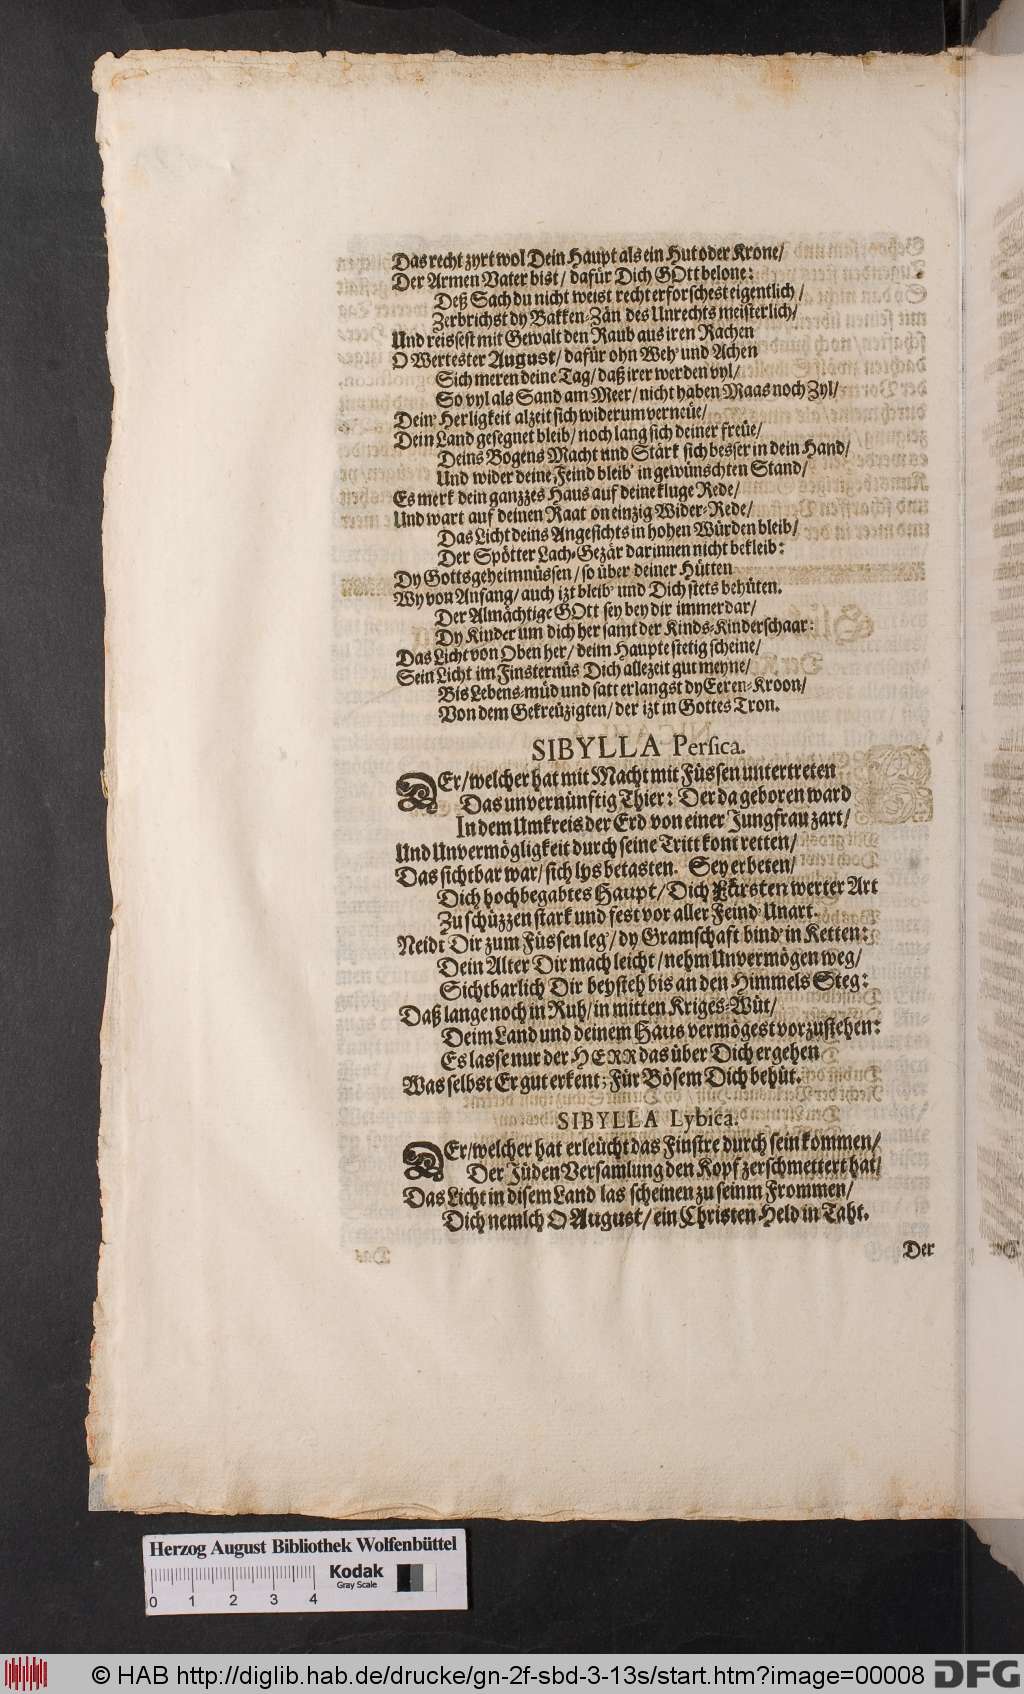 Das recht zyrt wol Dein Haupt als ein Hut oder Krone/
Der Armen Vater bist/ dafür Dich GOtt belone:
Deß Sach du nicht weist recht erforschest eigentlich/
Zerbrichst dy Bakken-Zän des Unrechts meisterlich/
Und reissest mit Gewalt den Raub aus iren Rachen
O Wertester August/ dafür ohn Weh' und Achen
Sich meren deine Tag/ daß irer werden vyl/
So vyl als Sand am Meer/ nicht haben Maas noch Zyl/
Dein' Herligkeit alzeit sich widerum verneüe/
Dein Land gesegnet bleib/ noch lang sich deiner freüe/
Deins Bogens Macht und Stärk sich besser in dein Hand/
Und wider deine Feind bleib' in gewünschten Stand/
Es merk dein ganzzes Haus auf deine kluge Rede/
Und wart auf deinen Raat on einzig Wider-Rede/
Das Licht deins Angesichts in hohen Würden bleib/
Der Spötter Lach-Gezär darinnen nicht bekleib:
Dy Gottsgeheimnüssen/ so über deiner Hütten
Wy von Anfang/ auch izt bleib' und Dich stets behüten.
Der Almächtige GOtt sey bey dir immerdar/
Dy Kinder um dich her samt der Kinds-Kinderschaar:
Das Licht von Oben her/ deim Haupte stetig scheine/
Sein Licht im Finsternüs Dich allezeit gut meyne/
Bis Lebens-müd und satt erlangst dy Eeren-Kroon/
Von dem Gekreüzigten/ der izt in Gottes Tron.
SIBYLLA Persica.
DEr/ welcher hat mit Macht mit Füssen untertreten
Das unvernünftig Thier: Der da geboren ward
In dem Umkreis der Erd von einer Jungfrau zart/
Und Unvermögligkeit durch seine Tritt kont retten/
Das sichtbar war/ sich lys betasten. Sey erbeten/
Dich hochbegabtes Haupt/ Dich Fürsten werter Art
Zu schüzzen stark und fest vor aller Feind' Unart.
Neidt Dir zum Füssen leg'/ dy Gramschaft bind' in Ketten:
Dein Alter Dir mach leicht/ nehm Unvermögen weg/
Sichtbarlich Dir beysteh bis an den Himmels Steg:
Daß lange noch in Ruh/ in mitten Kriges-Wüt/
Deim Land und deinem Haus vermögest vorzustehen:
Es lasse nur der HERR das über Dich ergehen
Was selbst Er gut erkent; Für Bösem Dich behüt.
SIBYLLA Lybica.
DEr/ welcher hat erleücht das Finstre durch sein kommen/
Der Jüden Versamlung den Kopf zerschmettert hat/
Das Licht in disem Land las scheinen zu seinm Frommen/
Dich nemlch O August/ ein Christen-Held in Taht.
Der
Herzog August Bibliothek Wolfenbüttel
Kodak
Gray Scale
0 1 2 3 4
© HAB http://diglib.hab.de/drucke/gn-2f-sbd-3-13s/start.htm?image=00008 DFG